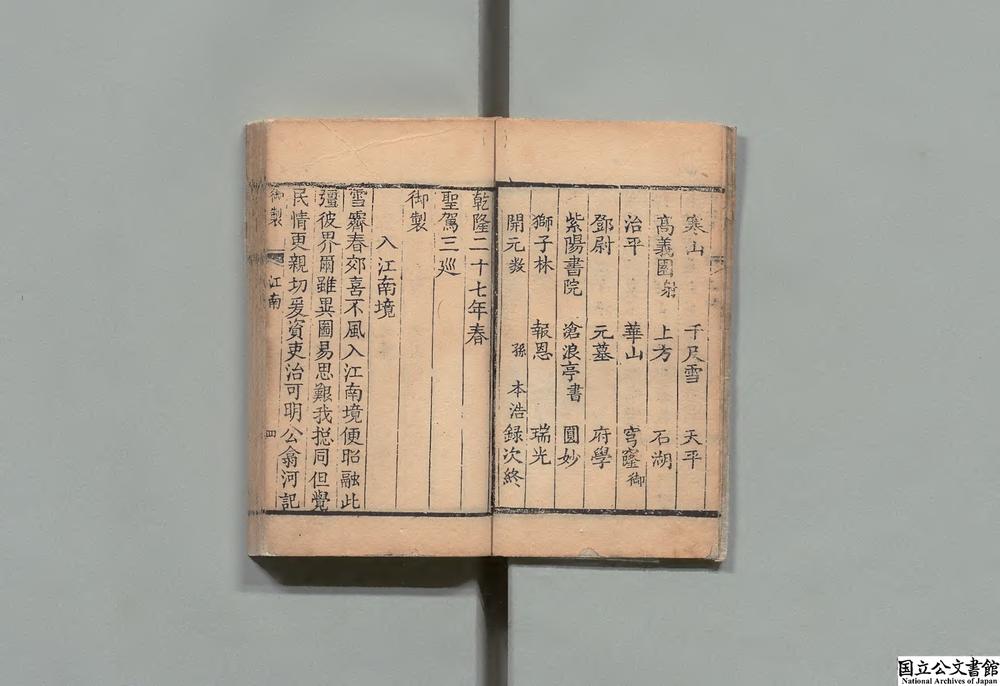 寒山 千尺雪 天平
高義園 上方 石湖
治平 華山 穹窿 御
鄧尉 元墓 府學
紫陽書院 滄浪亭 書 圓妙
獅子林 報恩 瑞光
開元教 孫 本浩 錄次終
乾隆二十七年春
聖駕三巡
御製
入江南境
雪霽春郊喜不風入江南境便昭融此
疆彼界爾雖異圖易思艱我揔同但覺
民情更親切爰資吏治可明公翕河記
御製 江南 四
国立公文書館
National Archives of Japan